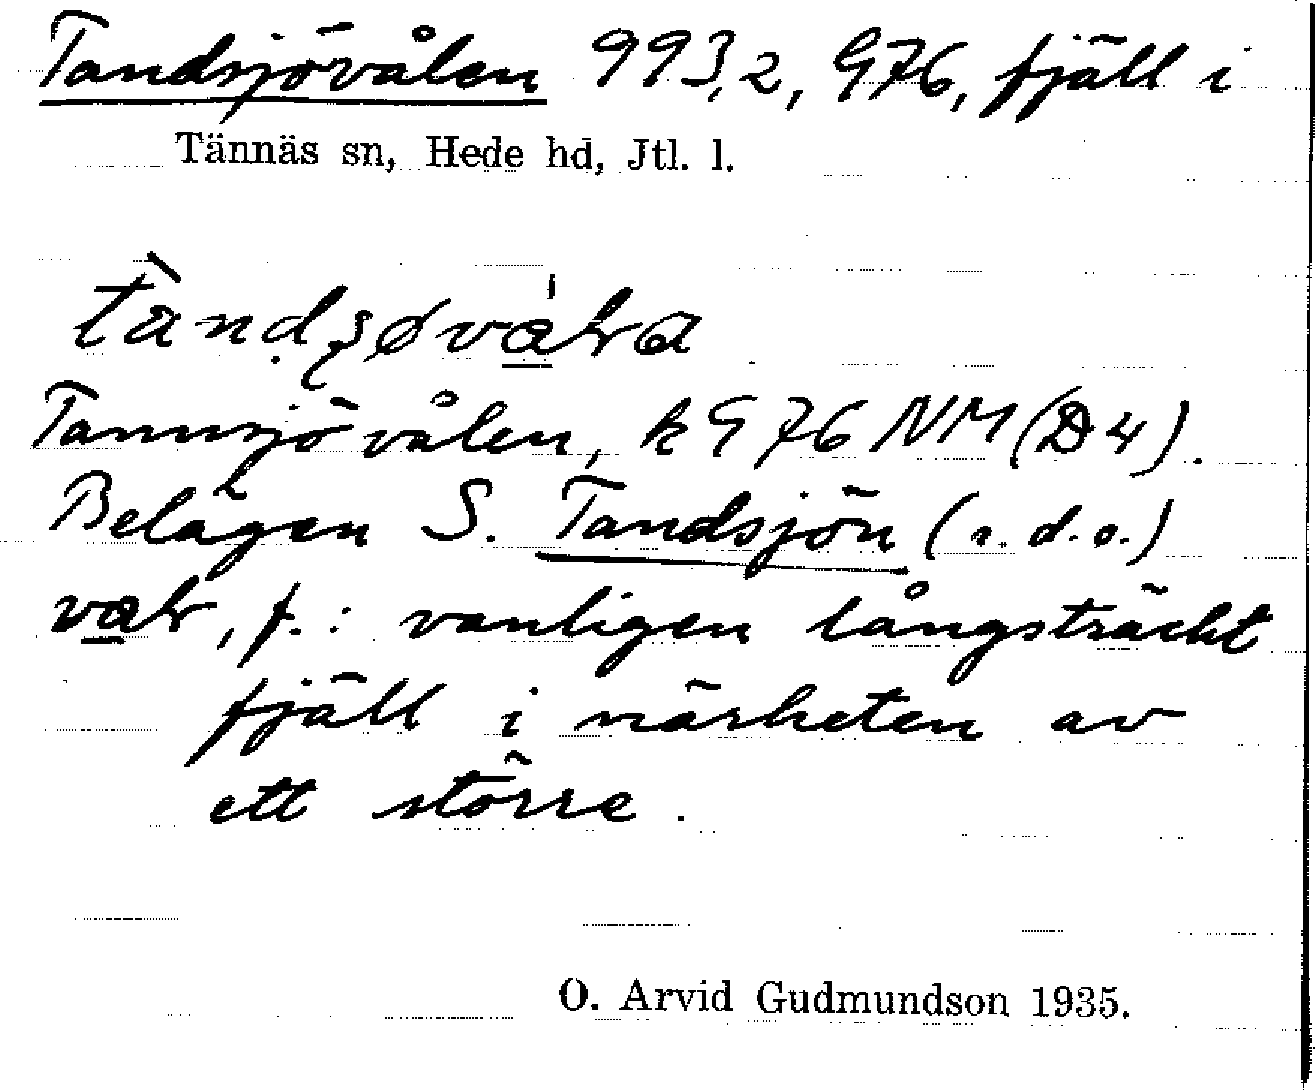 Tandsjövålen 993,2, G76, fjäll i
Tännäs sn, Hede hd, Jtl. l.
Tannsjövålen, k G76 NM (D4).
Belägen S. Tandsjön (s.d.o.)
f.: vanligen långsträckt
fjäll i närheten av
ett större.
O. Arvid Gudmundson 1935.